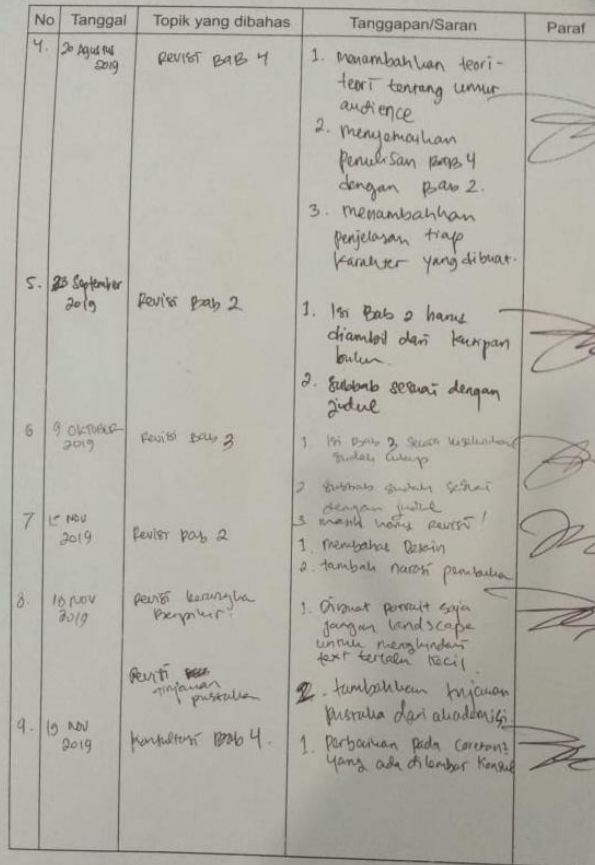 No Tanggal Topik yang dibahas Tanggapan/Saran Paraf
4. 20 Agustus 2019
Revisi BAB 4
1. menambahkan teori-
teori tentang unsur
audience
2. menyamakan
penulisan BAB 4
dengan Bab 2.
3. menambahkan
penjelasan tiap
karakter yang dibuat.
5. 23 September
2019
Revisi Bab 2
1. Isi Bab 2 harus
diambil dari kutipan
buku.
2. Subbab sesuai dengan
judul
6 9 OKTOBER
2019
Revisi Bab 3
1. Isi Bab 3 secara keseluruhan
sudah cukup
2 subbab sudah sesuai
dengan judul
3. masih harus revisi!
7 NOV
2019
Revisi bab 2
1. membahas Desain
2. tambah narasi pembuka
8. NOV
2019
Revisi kerangka
berpikir.
1. Dibuat potrait saja
jangan landscape
untuk menghindari
text terlalu kecil.
Revisi
tinjauan
pustaka
2. tambahkan tinjauan
pustaka dari akademisi.
9. 19 NOV
2019
Konsultasi Bab 4.
1. Perbaikan pada coretan2
yang ada dilembar Konsul